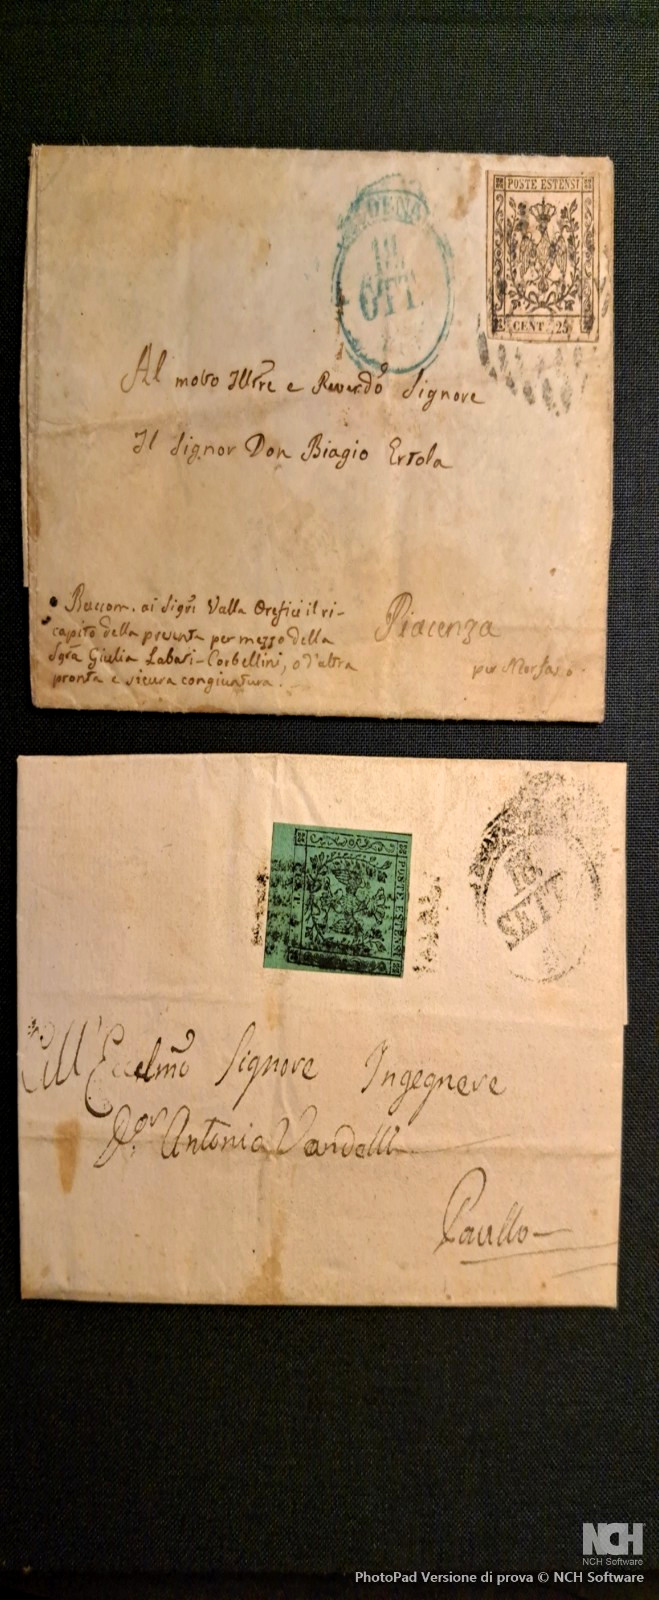 POSTE ESTENSI
CENT. 25
18
OTT
Al molto Illtre e Reverdo Signore
Il Signor Don Biagio Ertola
Raccom. ai Sigri Valla Orefici il ri-
capito della presente per mezzo della
Sgra Giulia Labati-Corbellini, o d'altra
pronta e sicura congiuntura.
Piacenza
per
POSTE ESTENSI
18
SETT
All' Eccelmo Signore Ingegnere
Antonio Vandelli
Paullo
NCH
NCH Software
PhotoPad Versione di prova © NCH Software